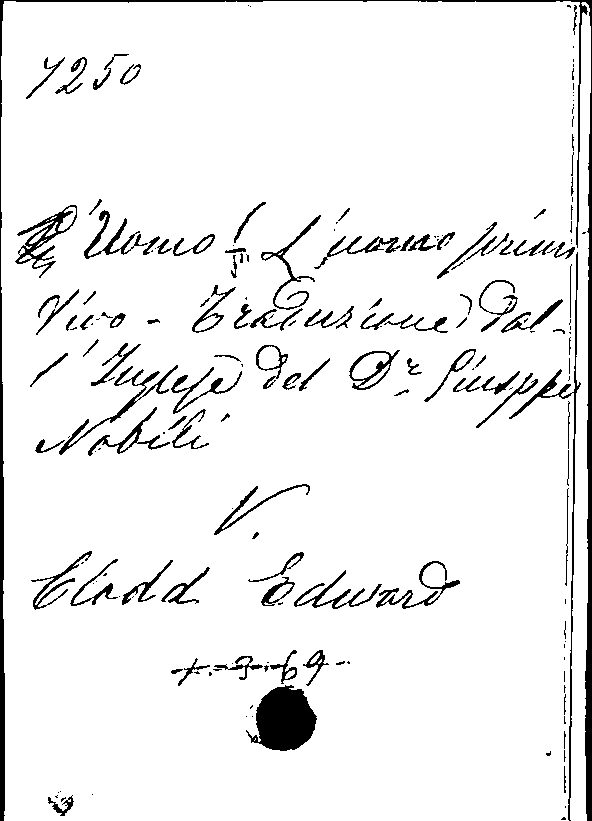 7250
L'Uomo (— L'uomo primi
tivo - Traduzione dal-
l'Inglese del Dr. Giuseppe
Nobili
V.
Clodd Edward
1.-3-69-